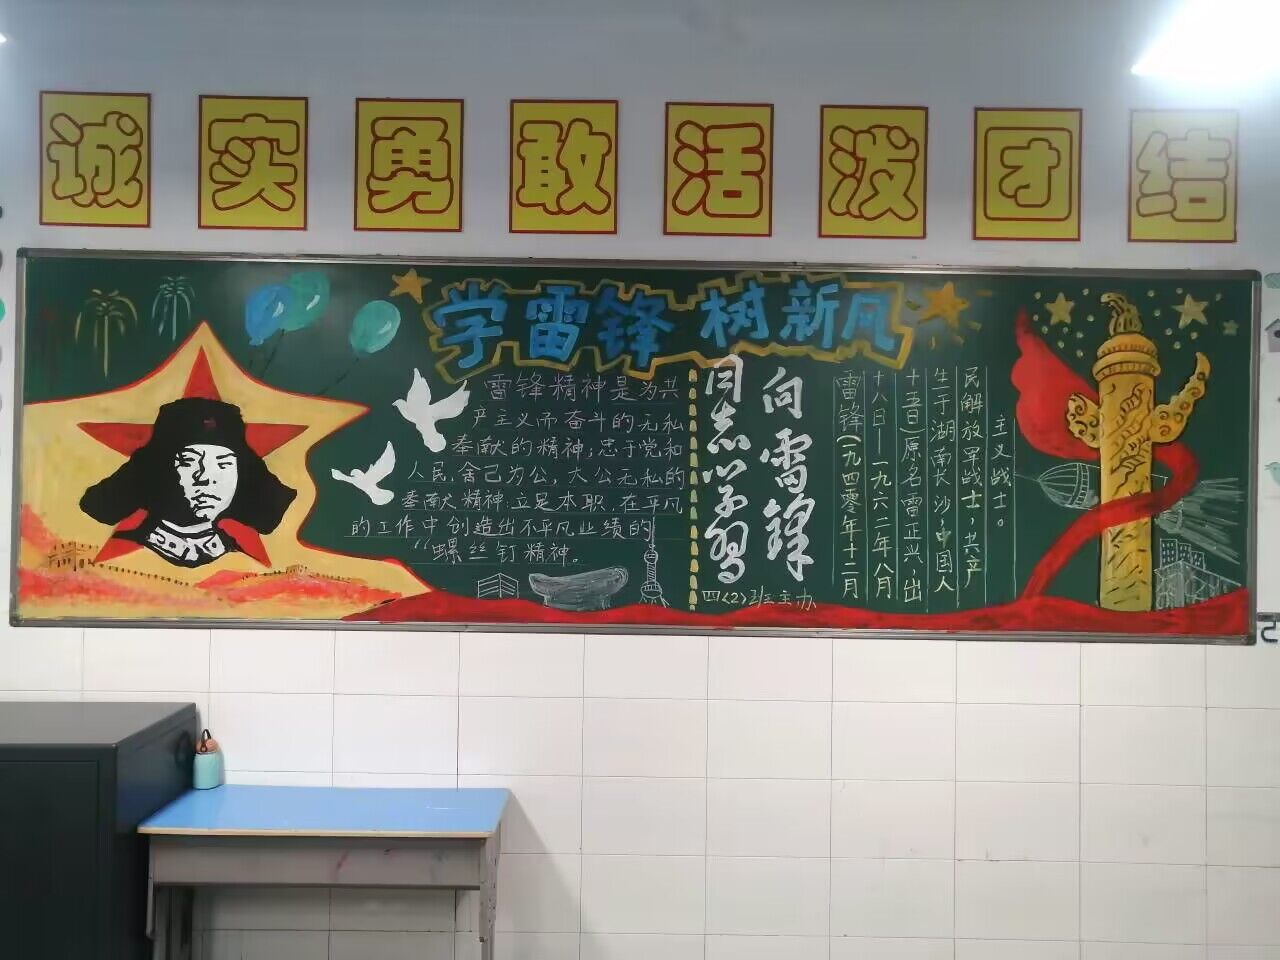 诚实勇敢活泼团结
学雷锋 树新风
雷锋精神是为共
产主义而奋斗的无私
奉献的精神;忠于党和
人民,舍己为公,大公无私的
奉献精神;立足本职,在平凡
的工作中创造出不平凡业绩的
“螺丝钉精神。
向雷锋
同志学习
四(2)班主办
雷锋(一九四零年十二月
十八日—一九六二年八月
十五日)原名雷正兴,出
生于湖南长沙,中国人
民解放军战士,共产
主义战士。